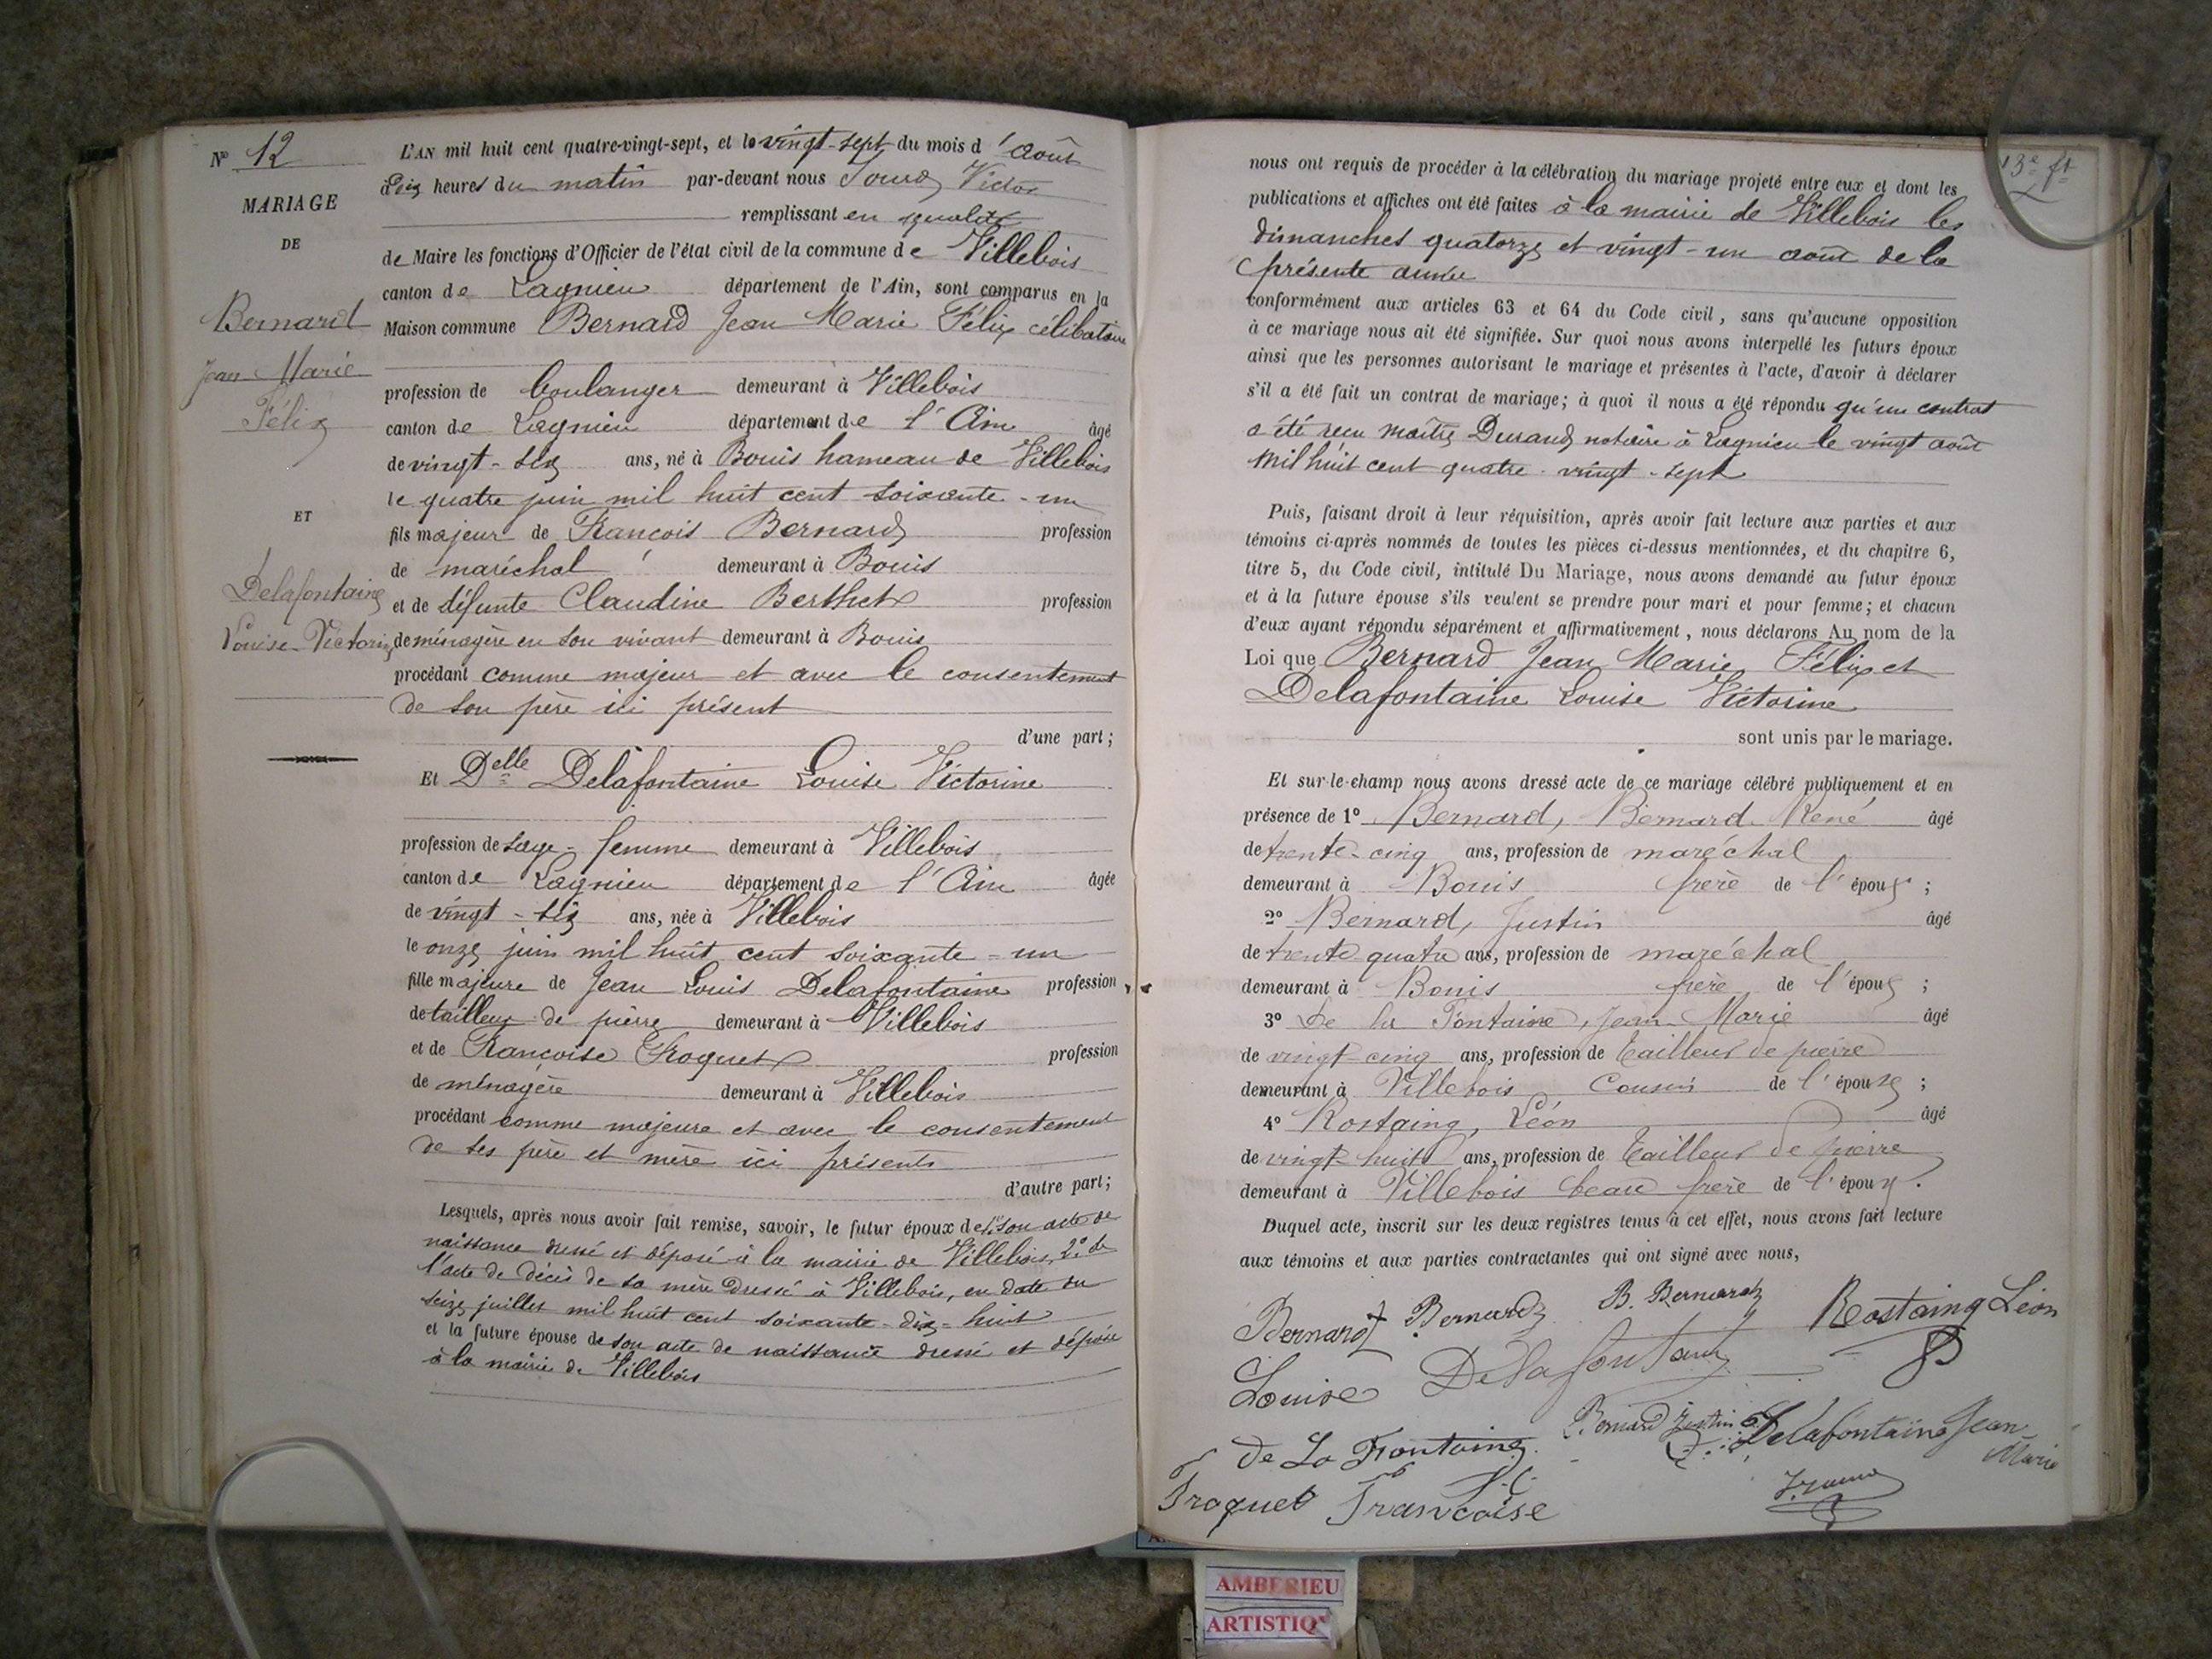 N° 12
MARIAGE
DE
Bernard
Jean Marie
Félix
ET
Delafontaine
Louise Victorine
L'AN mil huit cent quatre-vingt-sept, et le vingt-sept du mois d'août
à dix heures du matin par-devant nous Victor
remplissant en qualité
de Maire les fonctions d'Officier de l'état civil de la commune de Villebois
canton de Lagnieu département de l'Ain, sont comparus en la
Maison commune Bernard Jean Marie Félix célibataire
profession de boulanger demeurant à Villebois
canton de Lagnieu département de l'Ain âgé
de vingt-six ans, né à Bouis hameau de Villebois
le quatre juin mil huit cent soixante-un
fils majeur de François Bernard profession
de maréchal demeurant à Bouis
et de défunte Claudine Berthet profession
de ménagère en son vivant demeurant à Bouis
procédant comme majeur et avec le consentement
de son père ici présent
d'une part;
Et Delle Delafontaine Louise Victorine
profession de sage-femme demeurant à Villebois
canton de Lagnieu département de l'Ain âgée
de vingt-six ans, née à Villebois
le onze juin mil huit cent soixante-un
fille majeure de Jean Louis Delafontaine profession
de tailleur de pierre demeurant à Villebois
et de Françoise Froquet profession
de ménagère demeurant à Villebois
procédant comme majeure et avec le consentement
de ses père et mère ici présents
d'autre part;
Lesquels, après nous avoir fait remise, savoir, le futur époux de 1° son acte de
naissance dressé et déposé à la mairie de Villebois, 2° de
l'acte de décès de sa mère dressé à Villebois, en date du
seize juillet mil huit cent soixante-dix-huit
et la future épouse de son acte de naissance dressé et déposé
à la mairie de Villebois
13e ft
nous ont requis de procéder à la célébration du mariage projeté entre eux et dont les
publications et affiches ont été faites à la mairie de Villebois les
dimanches quatorze et vingt-un août de la
présente année
conformément aux articles 63 et 64 du Code civil, sans qu'aucune opposition
à ce mariage nous ait été signifiée. Sur quoi nous avons interpellé les futurs époux
ainsi que les personnes autorisant le mariage et présentes à l'acte, d'avoir à déclarer
s'il a été fait un contrat de mariage; à quoi il nous a été répondu qu'un contrat
a été reçu maître Durand notaire à Lagnieu le vingt août
mil huit cent quatre-vingt-sept
Puis, faisant droit à leur réquisition, après avoir fait lecture aux parties et aux
témoins ci-après nommés de toutes les pièces ci-dessus mentionnées, et du chapitre 6,
titre 5, du Code civil, intitulé Du Mariage, nous avons demandé au futur époux
et à la future épouse s'ils veulent se prendre pour mari et pour femme; et chacun
d'eux ayant répondu séparément et affirmativement, nous déclarons Au nom de la
Loi que Bernard Jean Marie Félix et
Delafontaine Louise Victorine
sont unis par le mariage.
Et sur-le-champ nous avons dressé acte de ce mariage célébré publiquement et en
présence de 1° Bernard, Bernard René âgé
de trente-cinq ans, profession de maréchal
demeurant à Bouis frère de l'époux;
2° Bernard, Justin âgé
de trente quatre ans, profession de maréchal
demeurant à Bouis frère de l'époux;
3° De la Fontaine, Jean-Marie âgé
de vingt-cinq ans, profession de tailleur de pierre
demeurant à Villebois cousin de l'épouse;
4° Rostaing, Léon âgé
de vingt-huit ans, profession de tailleur de pierre
demeurant à Villebois beau frère de l'époux.
Duquel acte, inscrit sur les deux registres tenus à cet effet, nous avons fait lecture
aux témoins et aux parties contractantes qui ont signé avec nous,
Bernard Bernard B. Bernard Rostaing Léon
Louise Delafontaine
Bernard Justin Delafontaine Jean
Marie
de La Fontaine
Froquet Françoise
AMBERIEU
ARTISTIQ